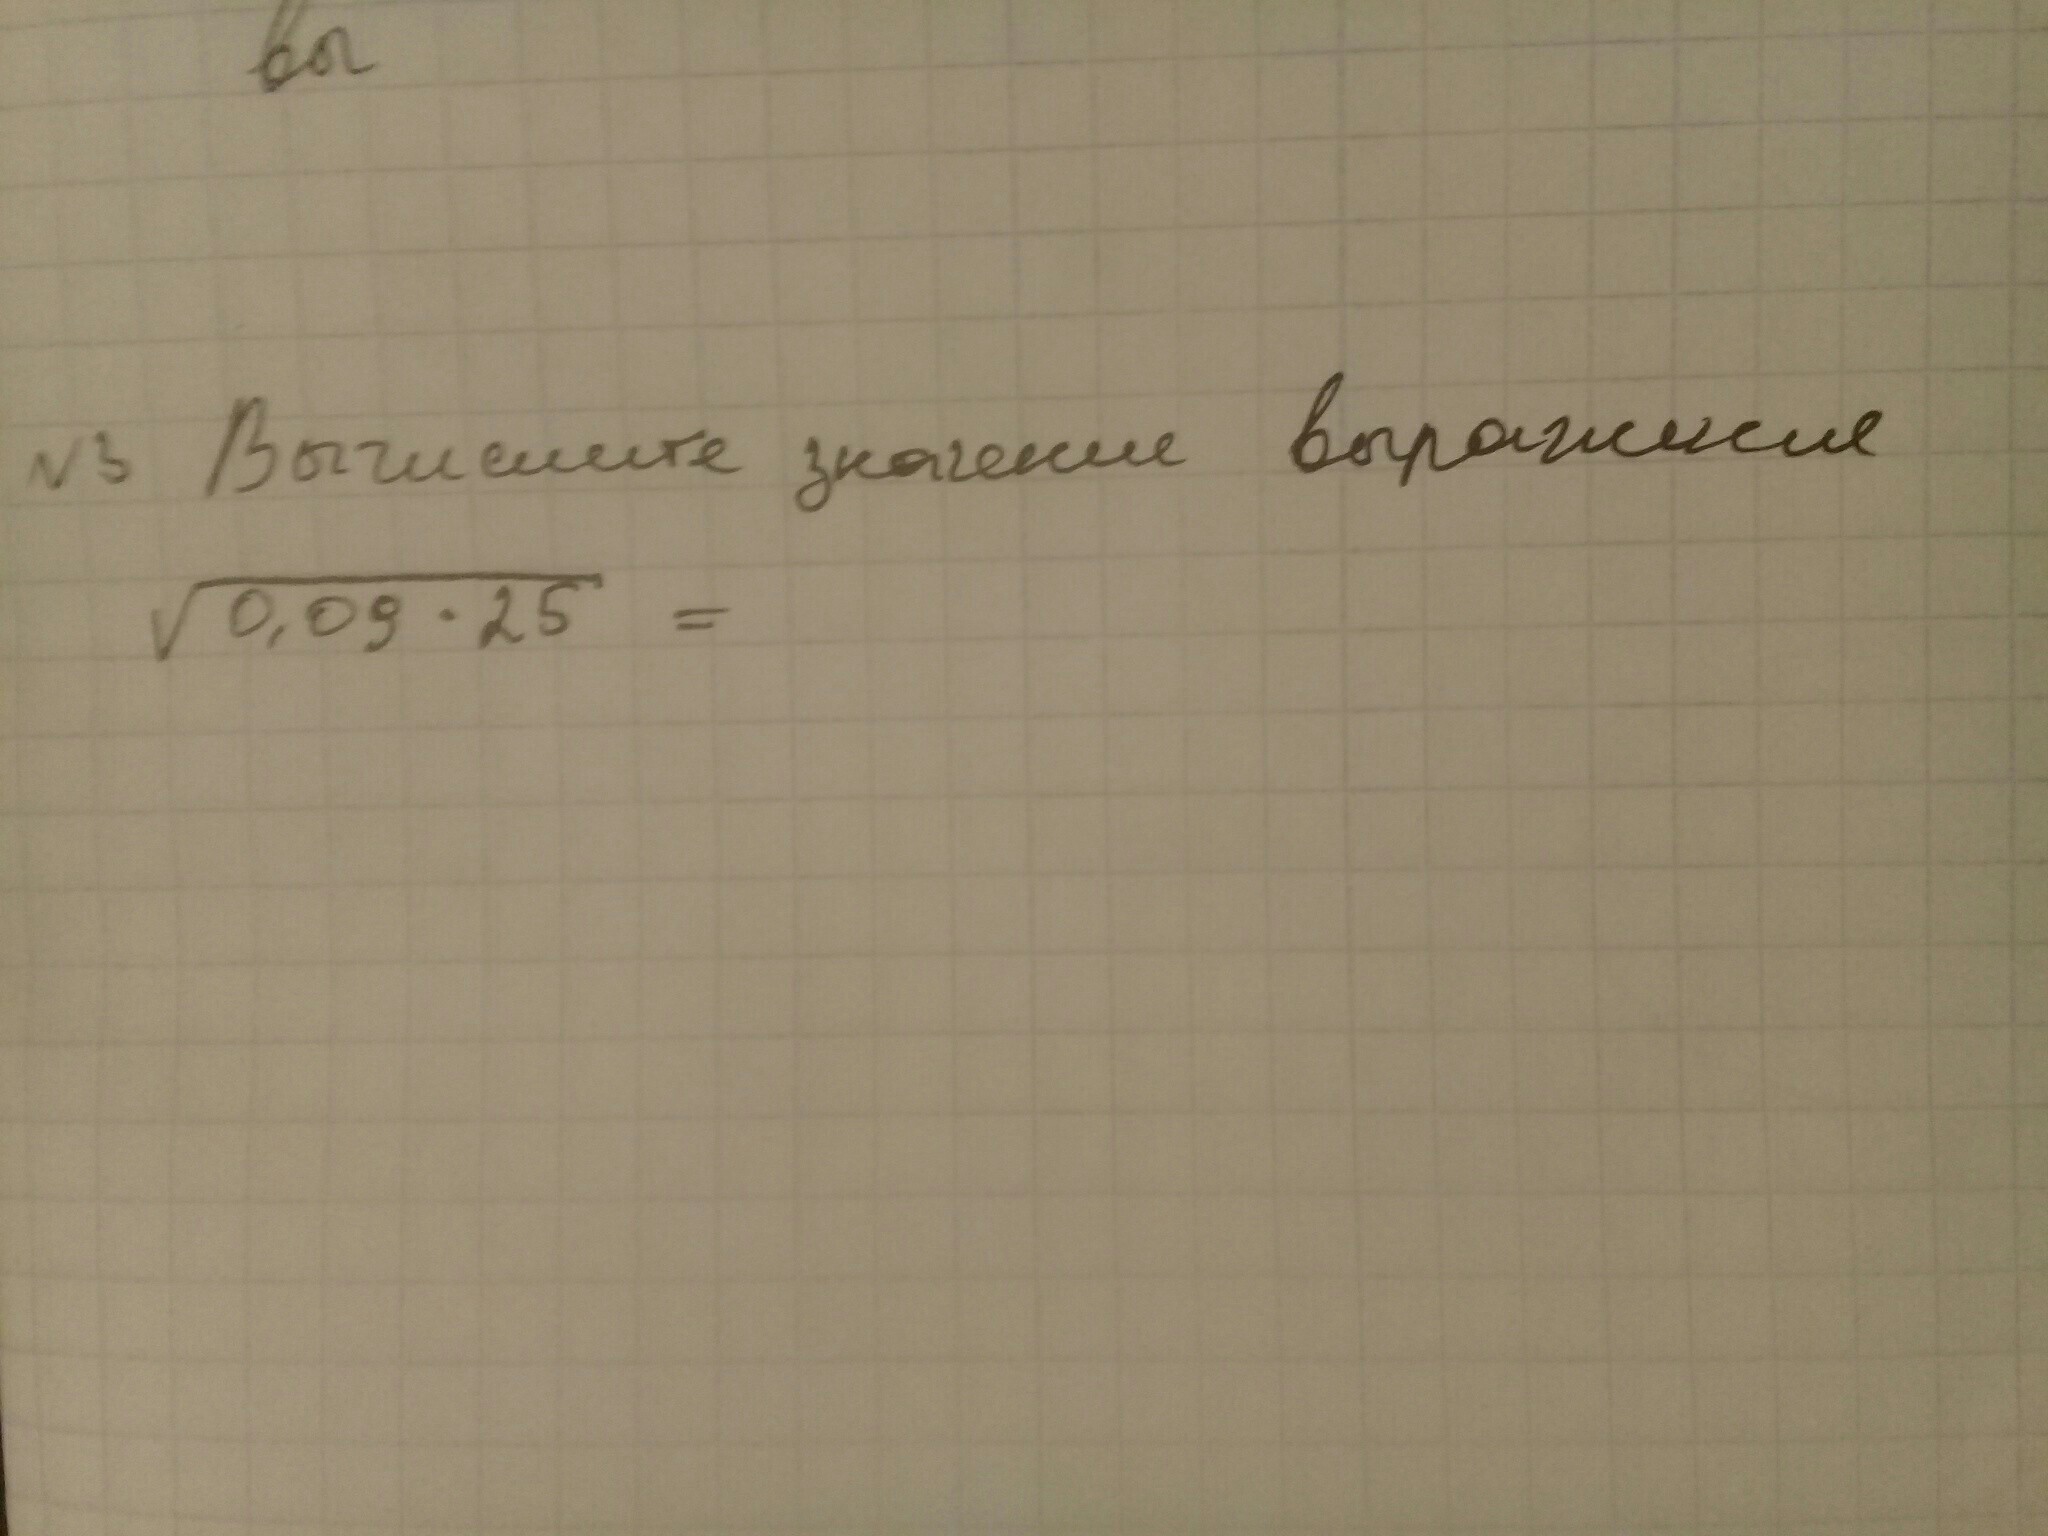 вы
№3 Вычислите значение выражение
√0,09 · 25 =